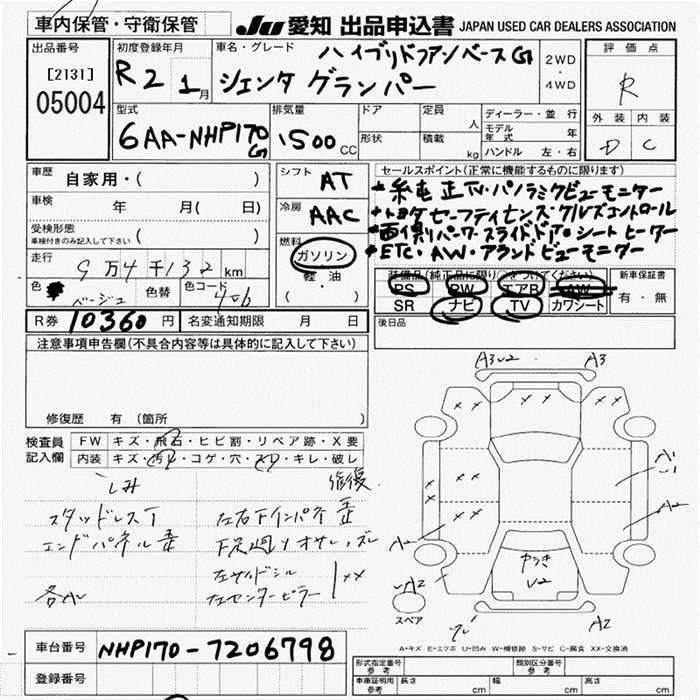 車内保管・守衛保管
JU 愛知 出品申込書 JAPAN USED CAR DEALERS ASSOCIATION
出品番号
[2131]
05004
初度登録年月
R2 1月
車名・グレード
ハイブリドファンベースG
シエンタ グランパー
2WD
・
4WD
評価点
R
外装 内装
D C
型式
6AA-NHP170G
排気量
1500 CC
ドア
形状
定員
人
積載
kg
ディーラー・並行
モデル年式 年
ハンドル 左・右
車歴
自家用・( )
車検
年 月( 日)
受検形態
車検付きのみ記入して下さい ( )
走行
9万4千132km
色 ベージュ 色替 色コード 4b6
R券 10360円 名変通知期限 月 日
シフト AT
冷房 AAC
燃料
ガソリン
軽・油
( )
セールスポイント(正常に機能するものに限ります)
・純正TV・パノラミクビューモニター
・トヨタセーフティセンス クルーズコントロール
・両側パワースライドドア・シートヒーター
・ETC・AW・アランドビューモニター
装備品(純正品に限り○をつけてください)
PS PW エアB AW
SR ナビ TV カワシート
新車保証書
有・無
後日品
注意事項申告欄(不具合内容等は具体的に記入して下さい)
修復歴 有 (箇所 )
検査員記入欄
FW キズ・飛石・ヒビ割・リペア跡・X要
内装 キズ・汚レ・コゲ・穴・スレ・キレ・破レ
シミ
修復
スタッドレス
左右下インパネ歪
エンドパネル歪
下足廻りオサレ、ズレ
左サイドシル
左センターピラー
XX
各AU
A3 U2 A3
A1
A2
A2
A2
A2
U2
スペア
A・キズ E・エクボ U・凹み W・補修跡 S・サビ C・腐食 XX・交換済
車台番号 NHP170-7206798
登録番号
形式指定番号 参考
類別区分番号 参考
車庫証明用 参考 長さ cm 幅 cm 高さ cm